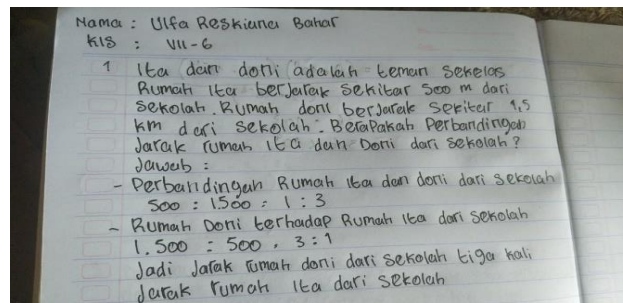 Nama : Ulfa Reskiana Bahar
Kls : VII-6
1 Ita dan doni adalah teman sekelas
Rumah Ita berjarak sekitar 500 m dari
sekolah. Rumah doni berjarak sekitar 1,5
km dari sekolah. Berapakah Perbandingan
Jarak rumah Ita dan Doni dari sekolah?
Jawab :
- Perbandingan Rumah Ita dan doni dari sekolah
500 : 1.500 = 1 : 3
- Rumah Doni terhadap Rumah Ita dari sekolah
1.500 : 500 . 3 : 1
Jadi Jarak rumah doni dari sekolah tiga kali
Jarak rumah Ita dari sekolah